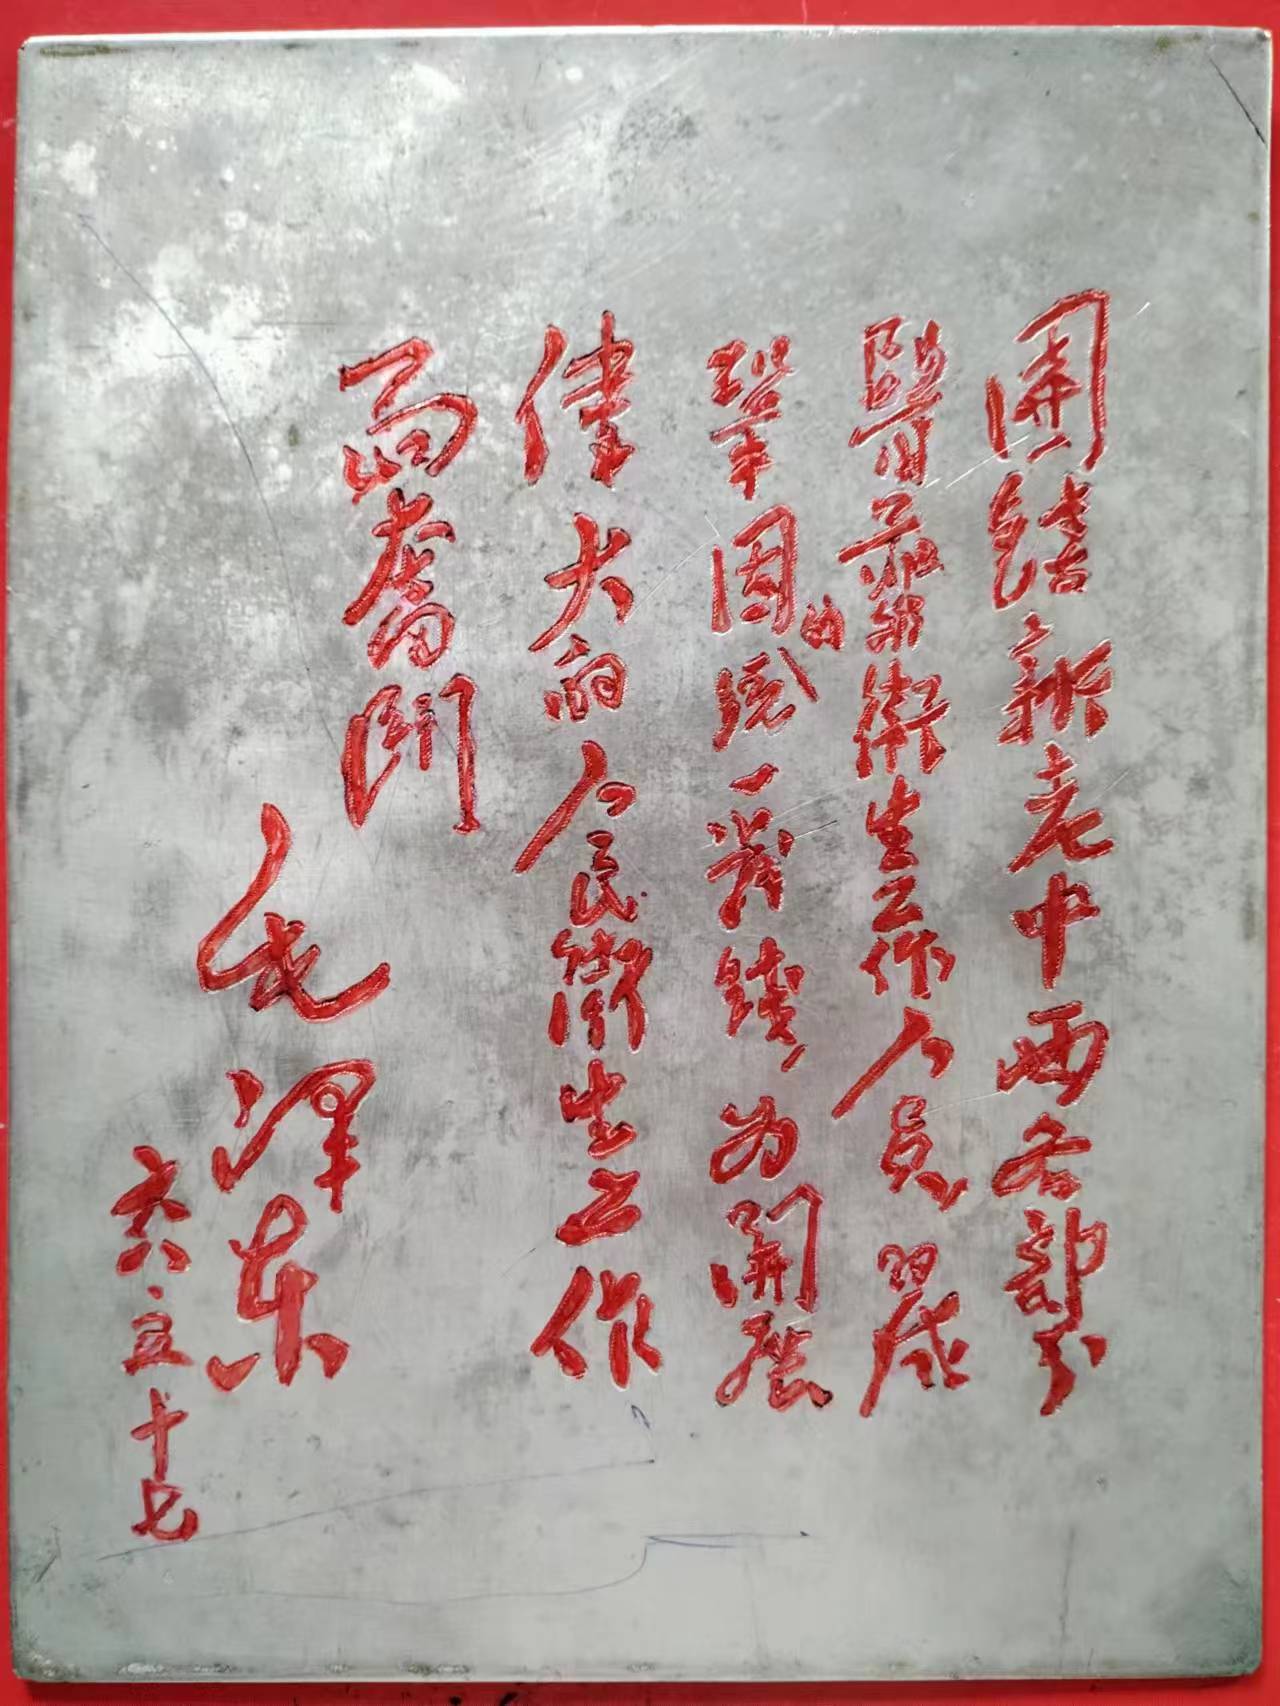 團結新老中西各部分
醫藥衛生工作人員組成
鞏固的統一戰線,為開展
偉大的人民衛生工作
而奮鬥
毛澤東
六八·五十七